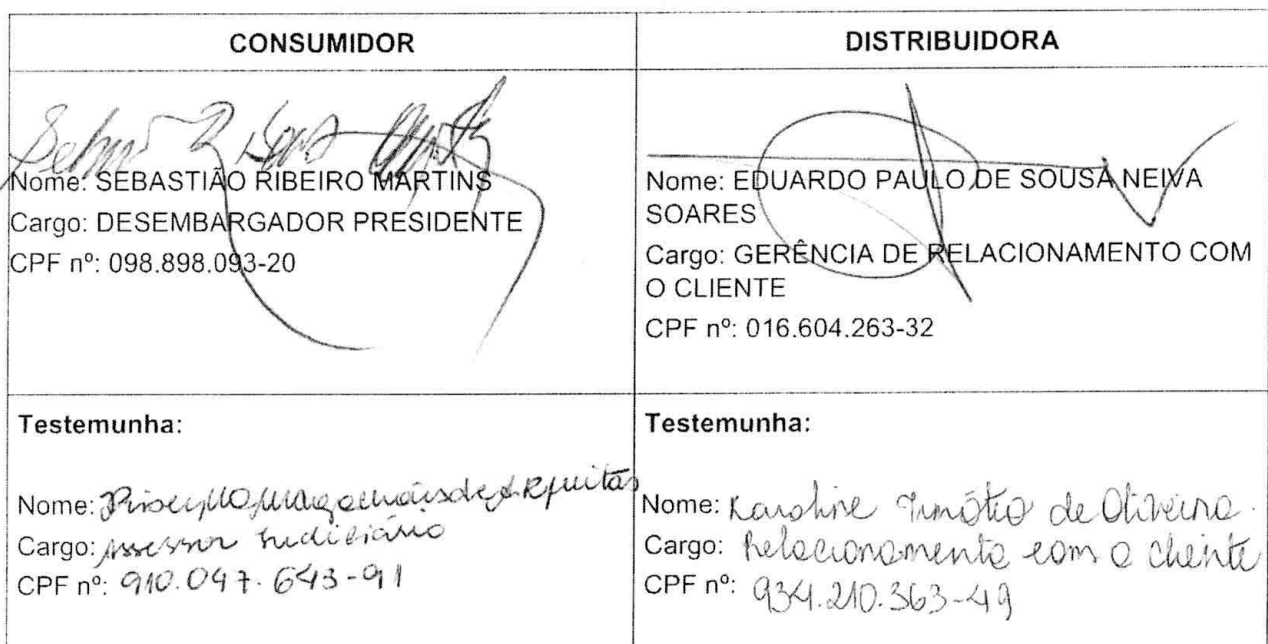 CONSUMIDOR
Nome: SEBASTIÃO RIBEIRO MARTINS
Cargo: DESEMBARGADOR PRESIDENTE
CPF nº: 098.898.093-20
DISTRIBUIDORA
Nome: EDUARDO PAULO DE SOUSA NEIVA
SOARES
Cargo: GERÊNCIA DE RELACIONAMENTO COM
O CLIENTE
CPF nº: 016.604.263-32
Testemunha:
Nome:
Cargo: Assessor Judiciário
CPF nº: 910.047.643-91
Testemunha:
Nome: Karoline Timótio de Oliveira.
Cargo: Relacionamento com o cliente
CPF nº: 934.210.363-49